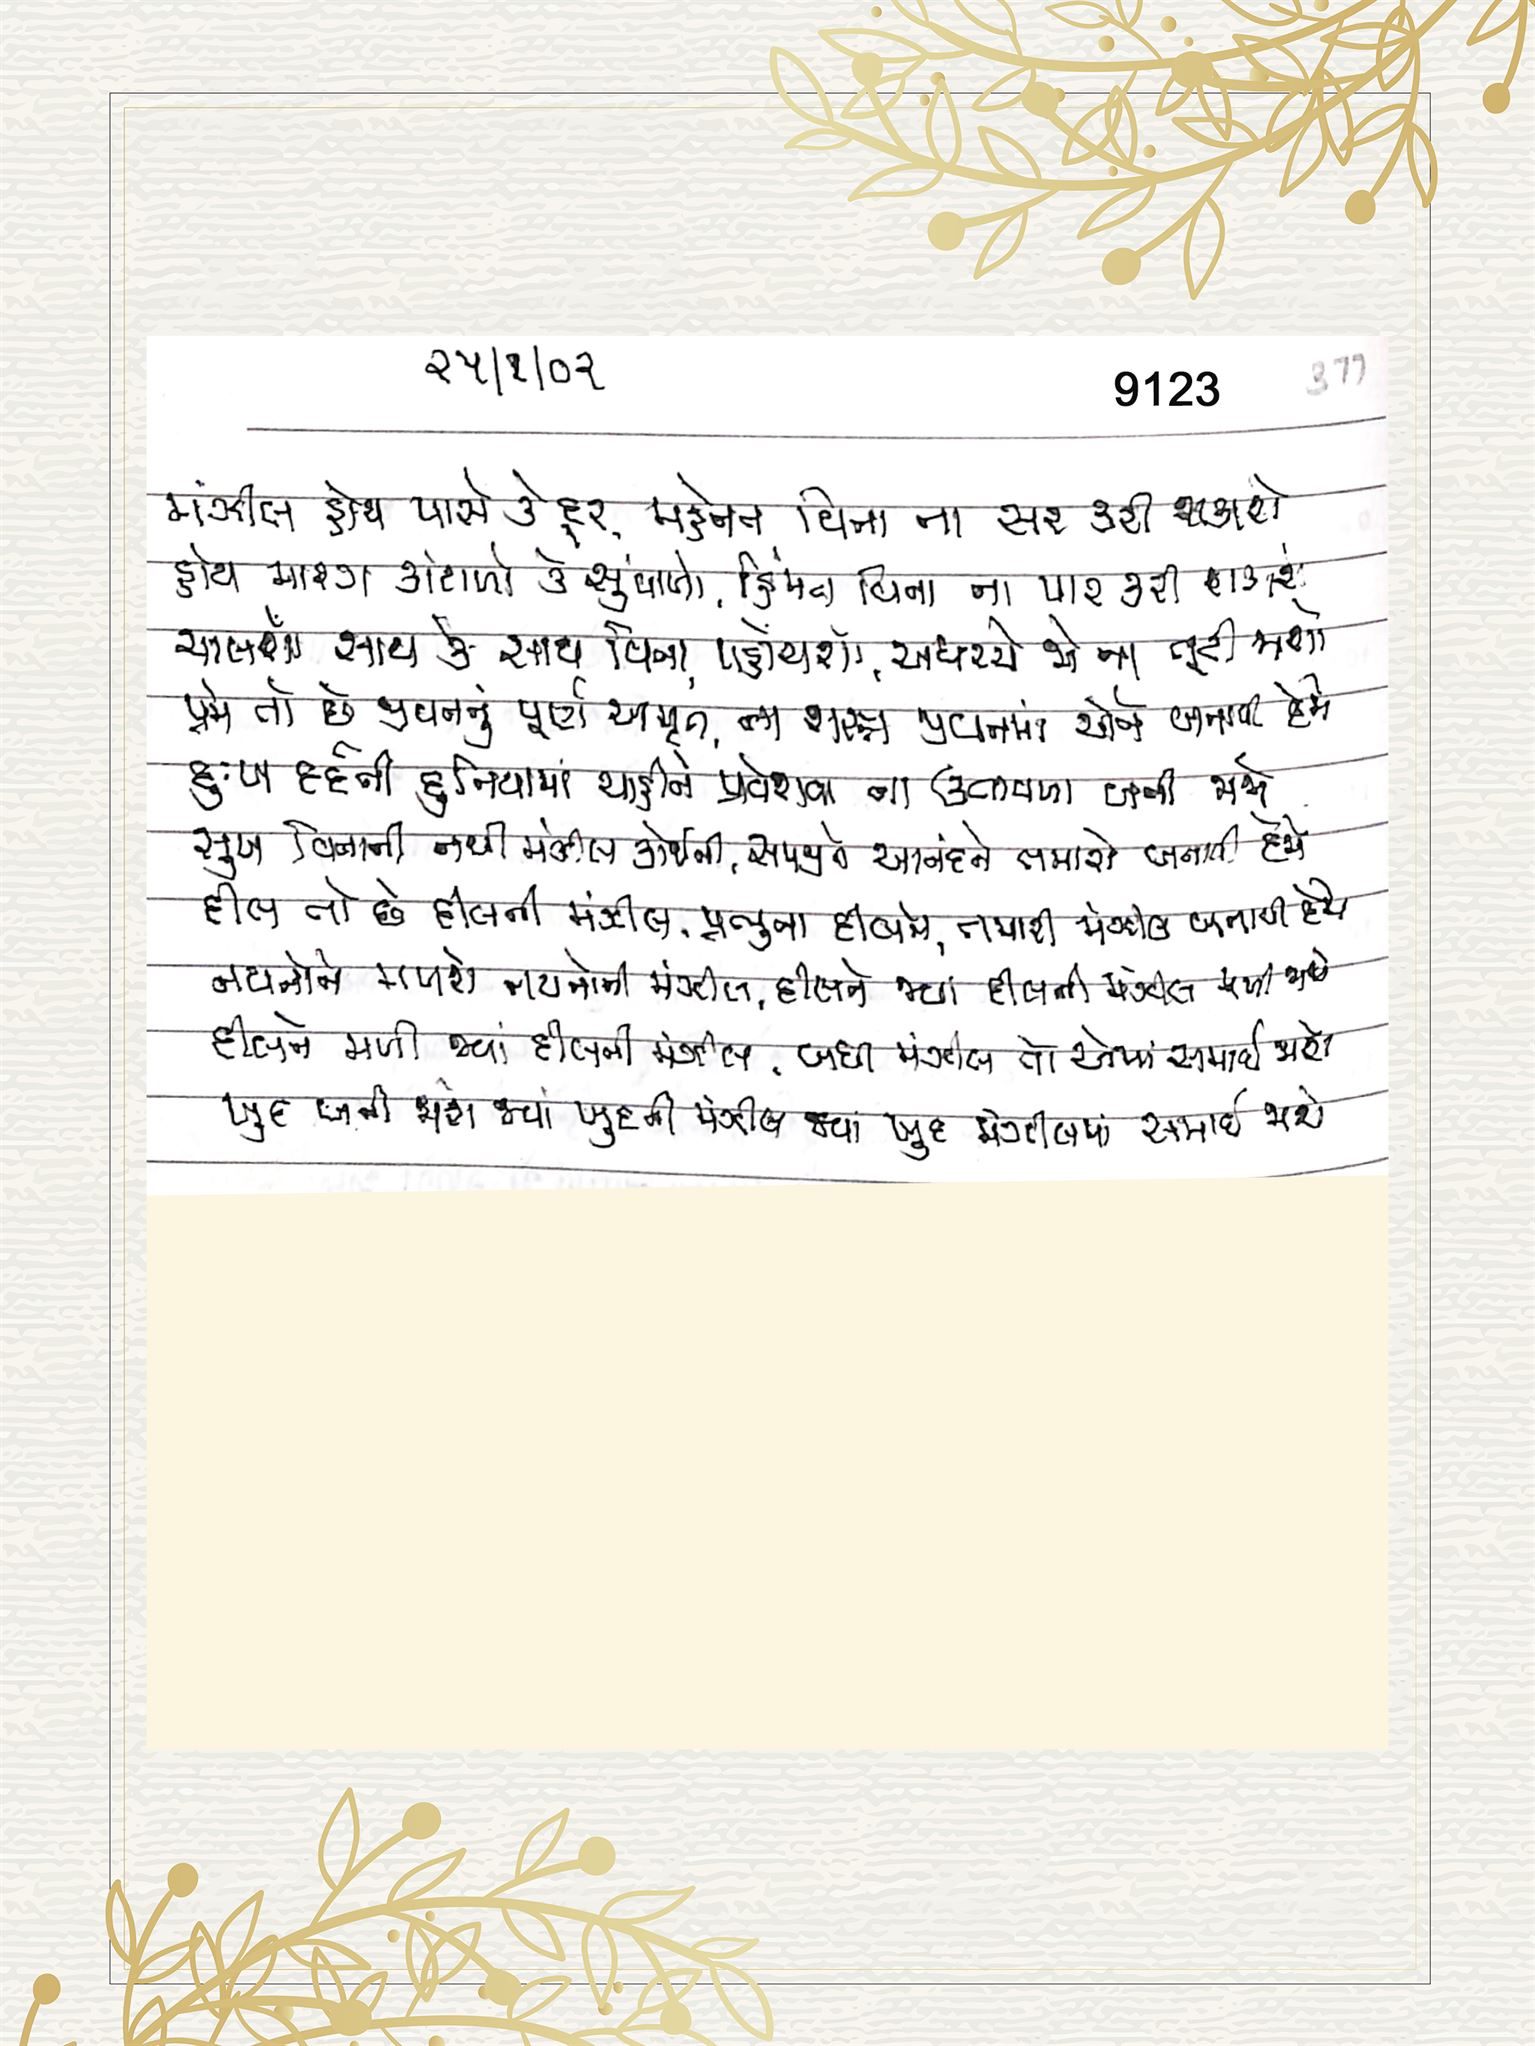 ૨૫/૧/૦૨
9123
377
મંઝીલ હોય પાસે કે દૂર, મહેનત વિના ના સર કરી શકાશે
હોય મારગ કાંટાળો કે સુંવાળો, હિંમત વિના ના પાર કરી શકાશે
ચાલશો સાથ કે સાથ વિના, પહોંચશો, અધરસ્તે જો ના તૂટી જાશો
પ્રેમ તો છે જીવનનું પૂર્ણ અમૃત, ના શસ્ત્ર જીવનમાં એને બનાવી દેજો
દુઃખ દર્દની દુનિયામાં ચાહીને પ્રવેશવા ના ઉતાવળા બની જાજો
સુખ વિનાની નથી મંઝીલ કોઈની, સમજીને આનંદને તમારો બનાવી દેજો
દીલ તો છે દીલની મંઝીલ, પ્રભુના દીલને, તમારી મંઝીલ બનાવી દેજો
નયનોને મળશે નયનોની મંઝીલ, દીલને જ્યાં દીલની મંઝીલ મળી જાશે
દીલને મળી જ્યાં દીલની મંઝીલ, બધી મંઝીલ તો એમાં સમાઈ જાશે
ખુદ બની જાશે જ્યાં ખુદની મંઝીલ જ્યાં ખુદ મંઝીલમાં સમાઈ જાશે